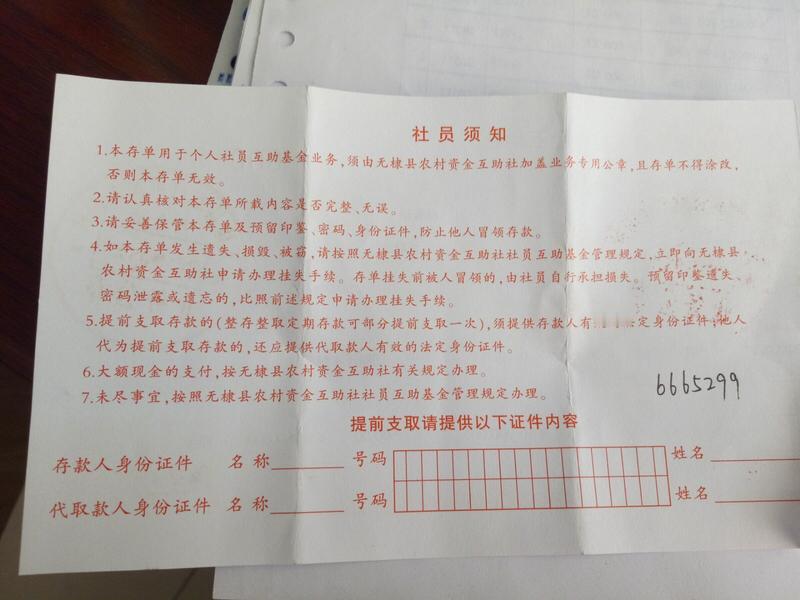 社员须知
1.本存单用于个人社员互助基金业务,须由无棣县农村资金互助社加盖业务专用公章,且存单不得涂改,
否则本存单无效。
2.请认真核对本存单所载内容是否完整、无误。
3.请妥善保管本存单及预留印鉴、密码、身份证件,防止他人冒领存款。
4.如本存单发生遗失、损毁、被窃,请按照无棣县农村资金互助社社员互助基金管理规定,立即向无棣县
农村资金互助社申请办理挂失手续。存单挂失前被人冒领的,由社员自行承担损失。预留印鉴遗失、
密码泄露或遗忘的,比照前述规定申请办理挂失手续。
5.提前支取存款的(整存整取定期存款可部分提前支取一次),须提供存款人有定身份证件;他人
代为提前支取存款的,还应提供代取款人有效的法定身份证件。
6.大额现金的支付,按无棣县农村资金互助社有关规定办理。
7.未尽事宜,按照无棣县农村资金互助社社员互助基金管理规定办理。
6665299
提前支取请提供以下证件内容
存款人身份证件 名称 号码 姓名
代取款人身份证件 名称 号码 姓名